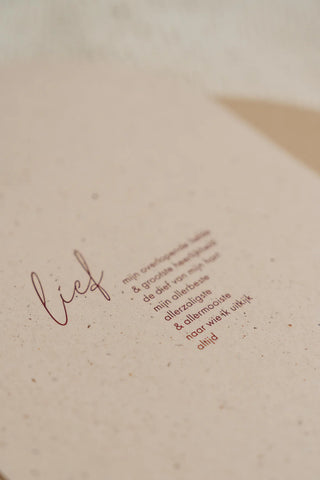 lief
mijn overlopende liefde
& grootste heerlijkheid
de dief van mijn hart
mijn allerbeste
allerzaligste
& allermooiste
naar wie ik uitkijk
altijd